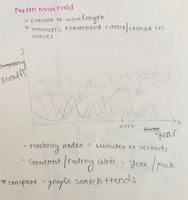 Perlin Noise Field
* Similar to wavelength
* Women's Movement came/comes in
waves
Month
x
Year
- Flashing nodes = minutes or seconds
- Gradient / Fading colors = Year / Peak
* compare = google search trends